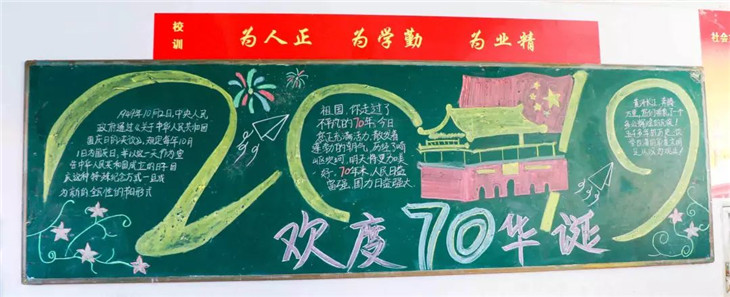 校训
为人正 为学勤 为业精
社会
2019
1949年10月2日,中央人民
政府通过《关于中华人民共和国
国庆日的决议》,规定每年10月
1日为国庆日,并以这一天作为宣
告中华人民共和国成立的日子.自
此这种特殊纪念方式一旦成
为新的、全民性的节日形式
祖国,你走过了
不平凡的70年,今日
您正充满活力,散发着
蓬勃的朝气,历经了峥
嵘岁月,明天将更加美
好。70年来,人民日益
富强,国力日益强大
黄河长江,奔腾
欢度70华诞